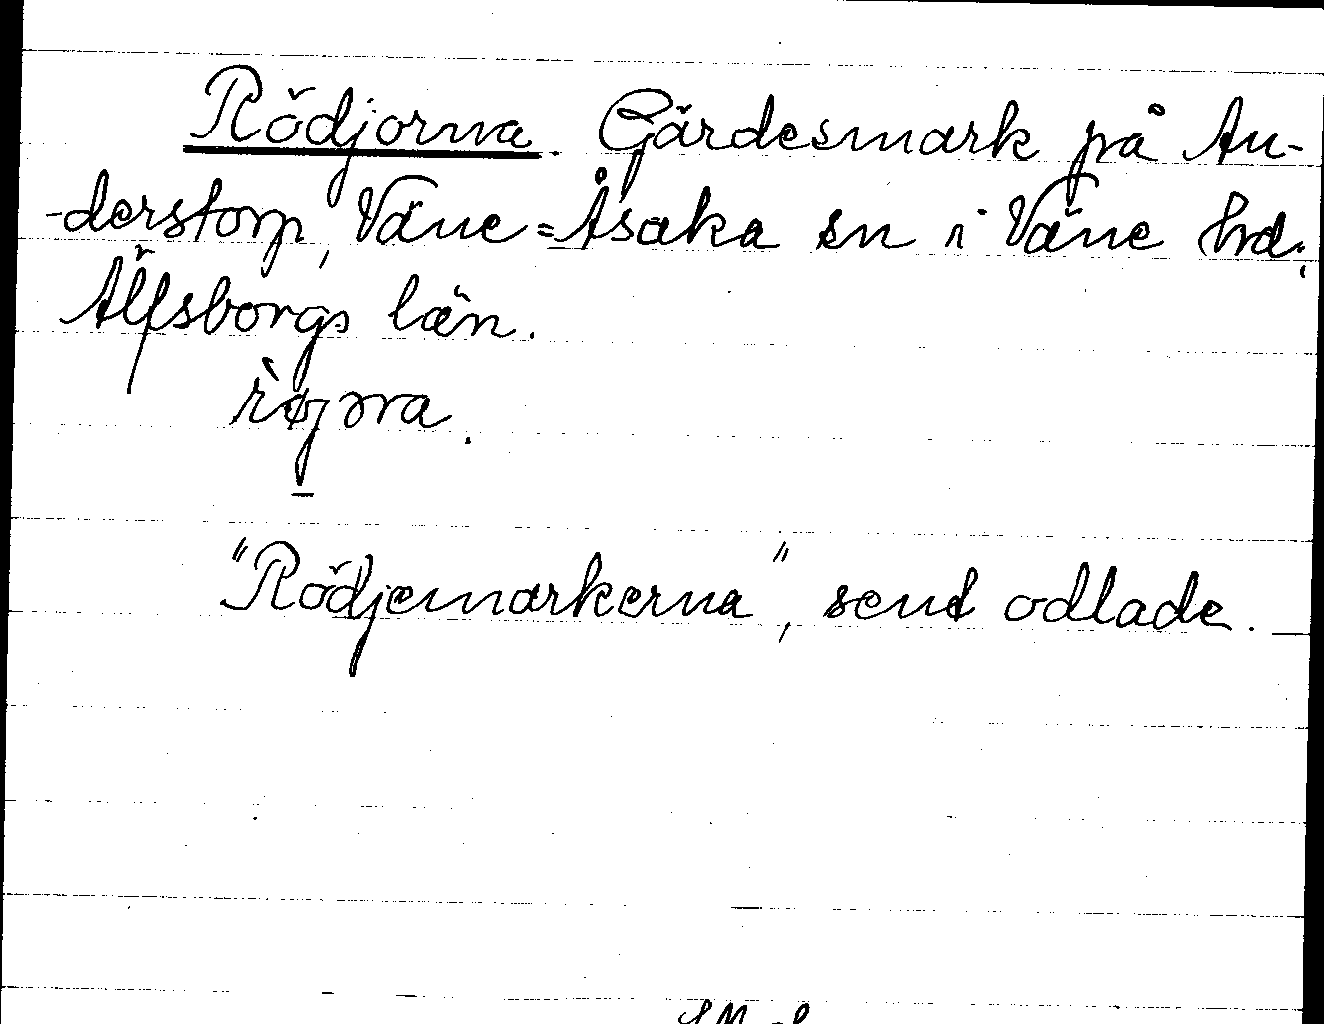 Rödjorna. Gärdesmark på An-
-derstorp, Väne=Åsaka sn i Väne hrd,
Älfsborgs län.
"Rödjemarkerna", sent odlade.